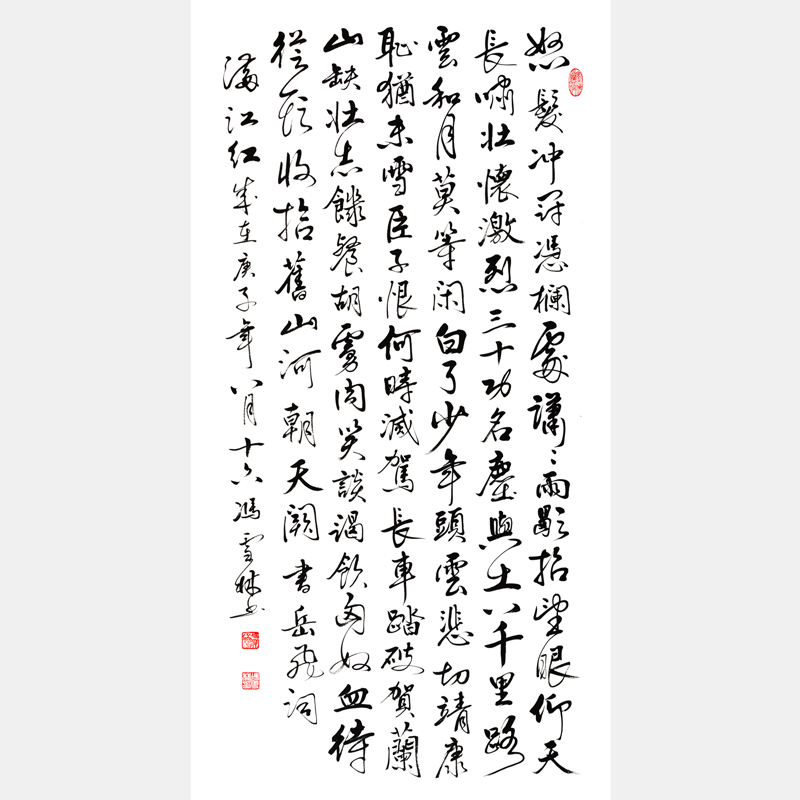 怒髮冲冠憑欄處瀟〻雨歇抬望眼仰天
長嘯壯懷激烈三十功名塵與土八千里路
雲和月莫等閑白了少年頭雲悲切靖康
恥猶未雪臣子恨何時滅駕長車踏破賀蘭
山缺壯志饑餐胡虜肉笑談渴飲匈奴血待
從頭收拾舊山河朝天闕書岳飛詞
滿江紅歲在庚子年八月十六馮雪林书